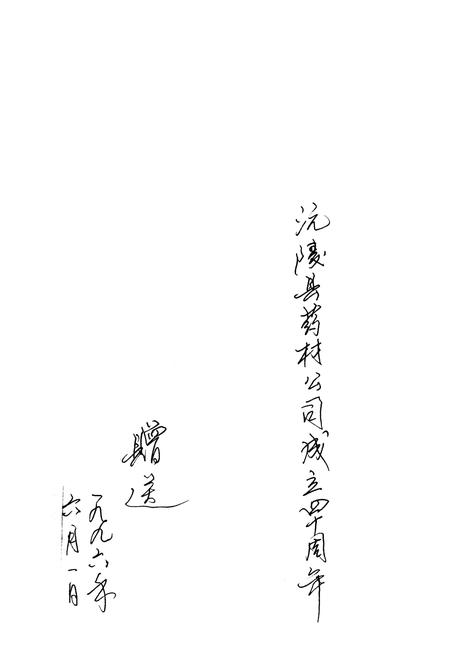 沅陵县药材公司成立四十周年
赠送
一九九六年
六月一日